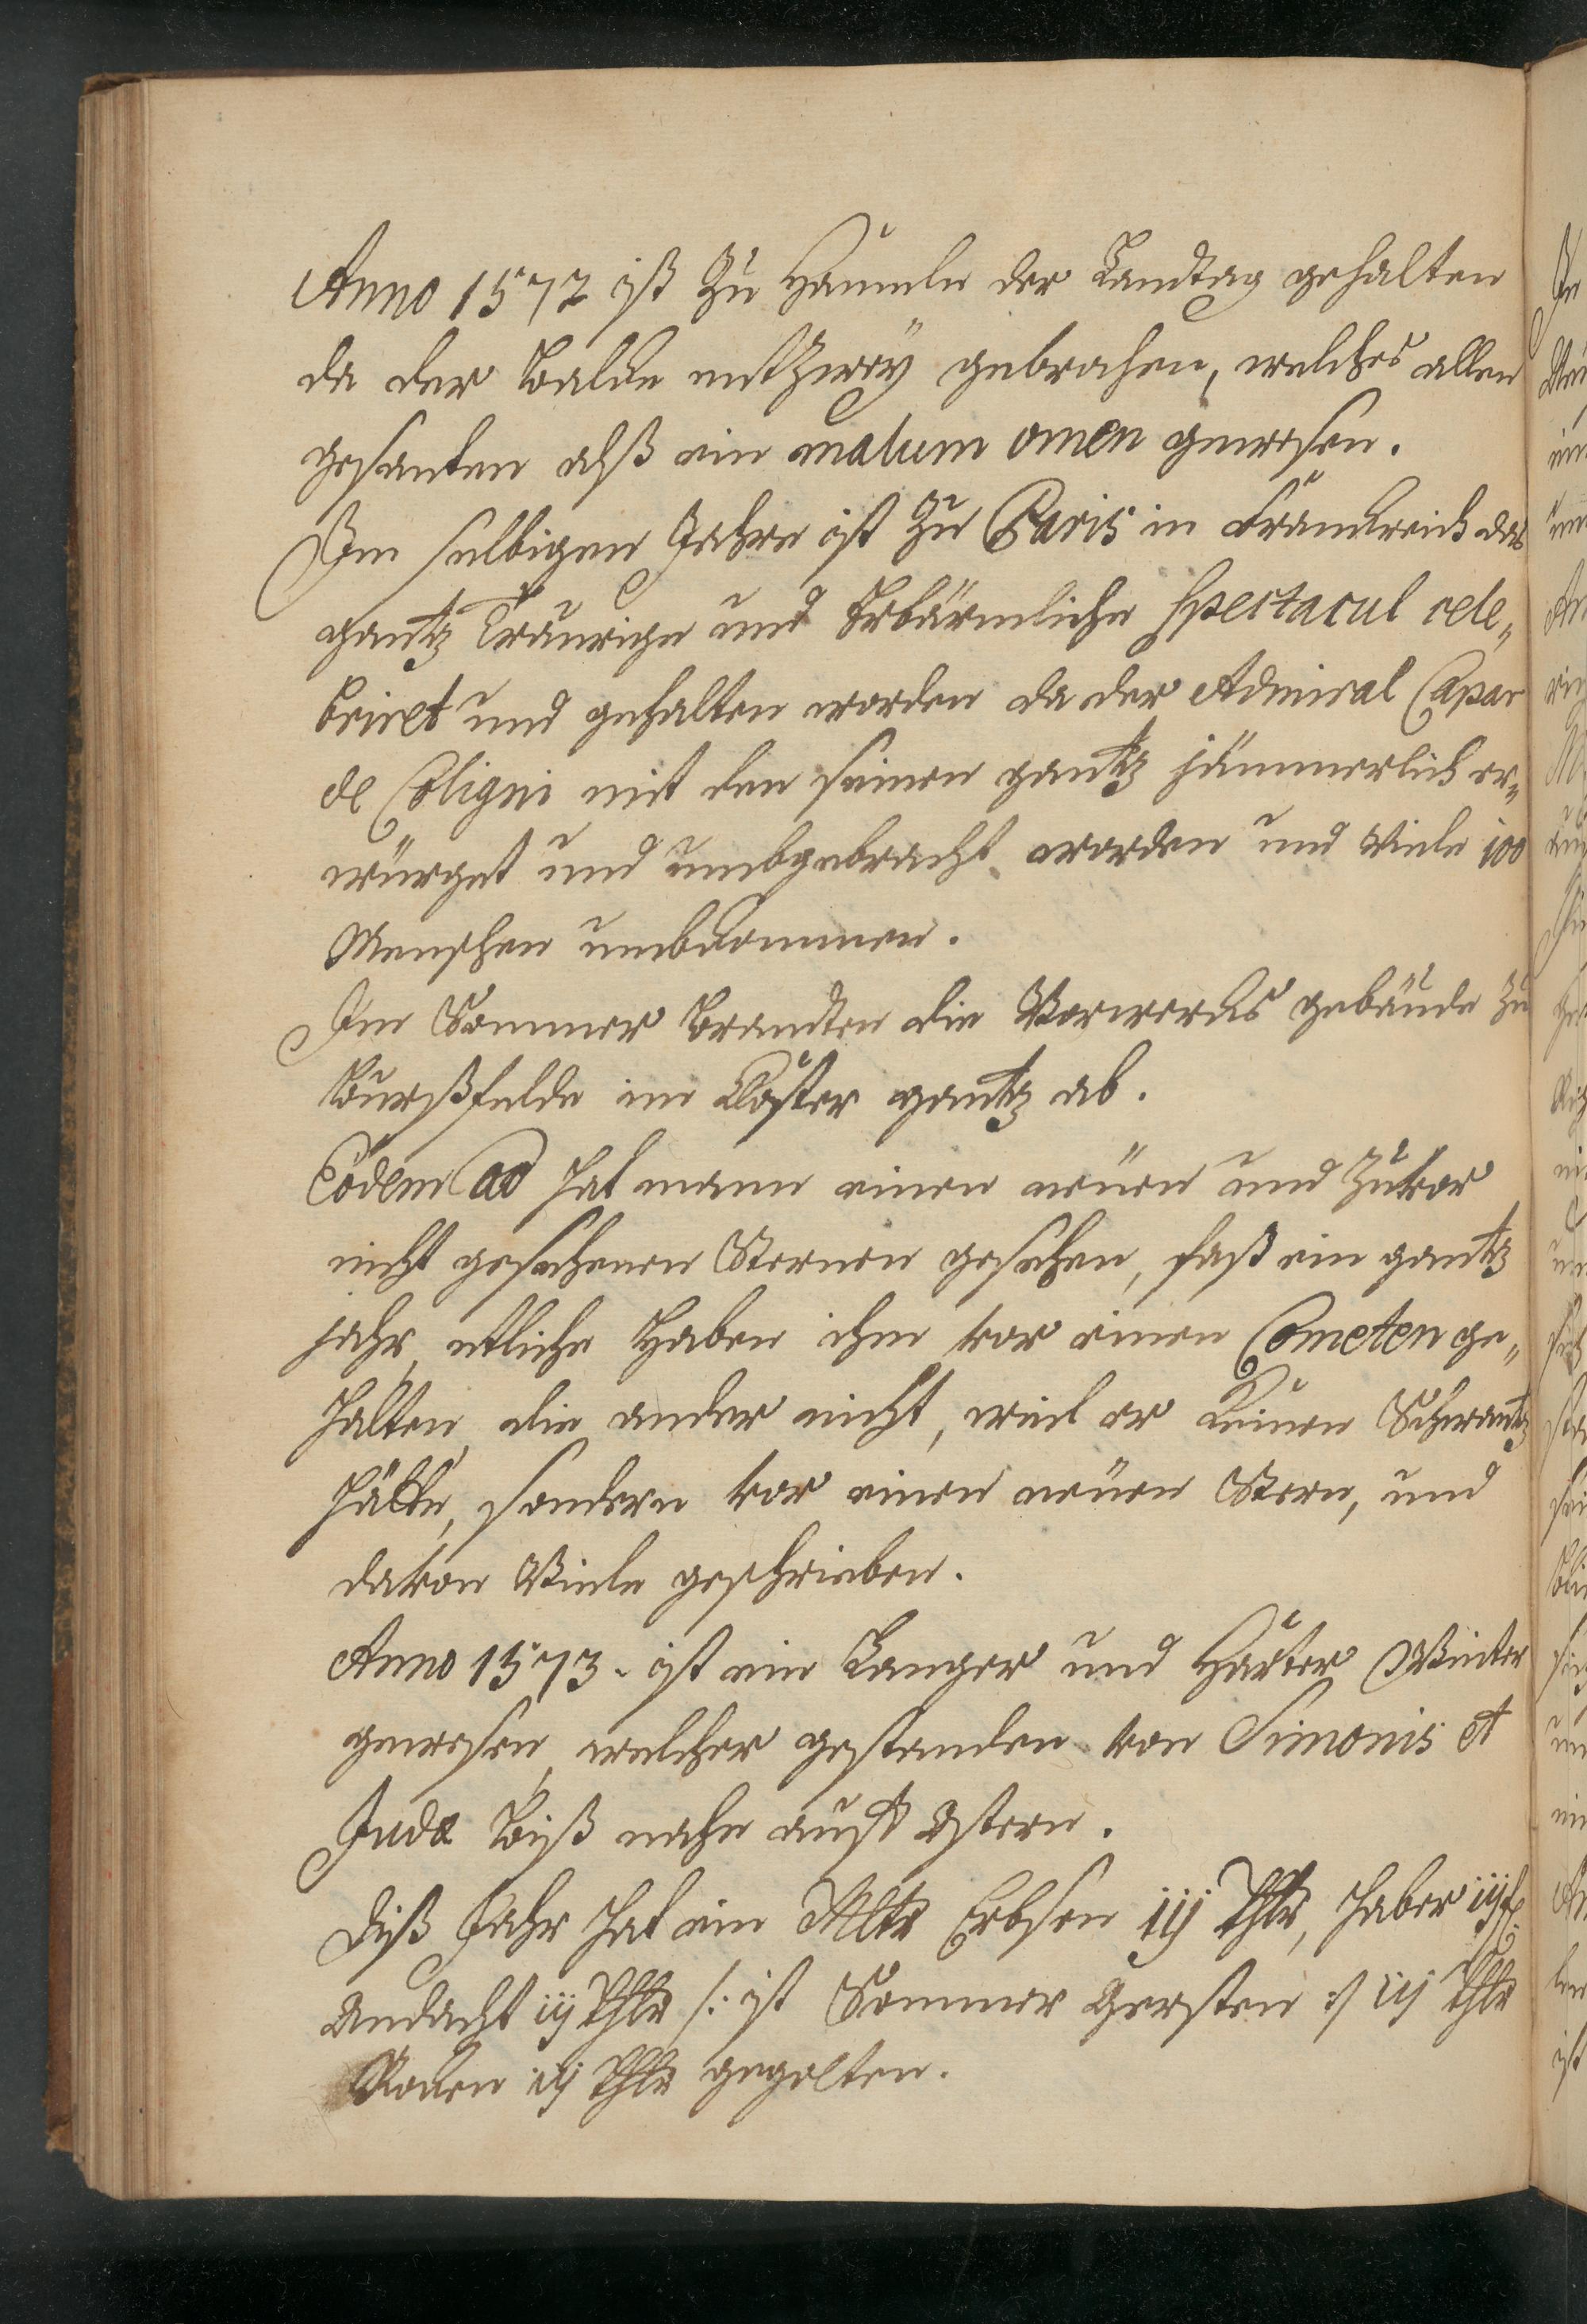 Anno 1572 ist Zu Hameln der Landtag gehalten
da der Balke entzwey gebrochen, welches allen
gesanten alß ein malum omen gewesen.
Im selbigen Jahre ist Zu Paris in Franckreich das
gantz Traurige und Erbärmliche Spectacul cele„
briret und gehalten worden da der Admiral Caspar
de Coligni mit den seinen gantz jämmerlich er„
würget und umbgebracht worden und Viele 100
Menschen umbkommen.
Im Sommer brandten die Vorwercks gebäude zu
Burßfelde im Closter gantz ab.
Eodem ao hat mann einen neüen und Zuvor
nicht gesehenen Sternen gesehen, fast ein gantz
jahr, etliche Haben ihm vor einen Cometen ge„
halten, die ander nicht, weil er keinen Schwantz
hätte, sondern vor einen neüen Stern, und
davon Viele geschrieben.
Anno 1573. ist ein Langer und Harter Winter
gewesen, welcher gestanden von Simonis et
Judæ Biß nahe auff Ostern.
Diß Jahr hat ein Mltr Erbsen iij Thlr, Haber
ij Thlr /: ist Sommer Gersten :/ iij Thlr
Rocken iij Thlr gegolten.